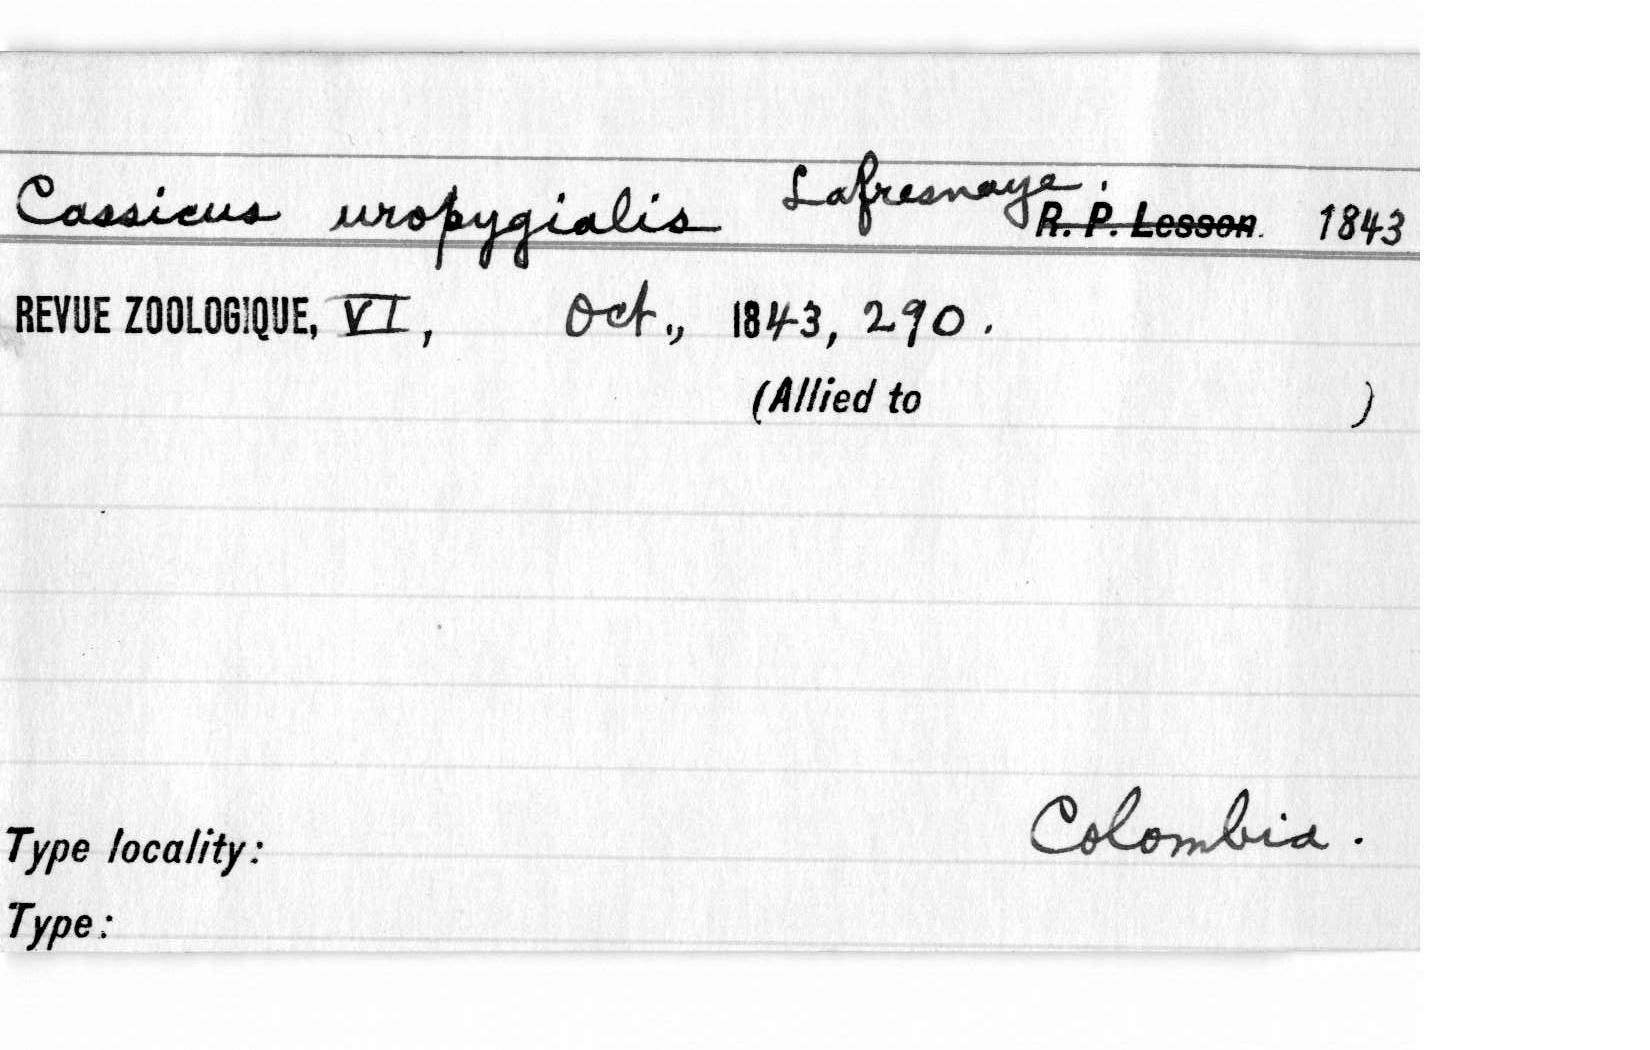 Cassicus uropygialis Lafresnaye. R. P. Lesson. 1843
REVUE ZOOLOGIQUE, VI, Oct., 1843, 290.
(Allied to )
Colombia.
Type locality:
Type: